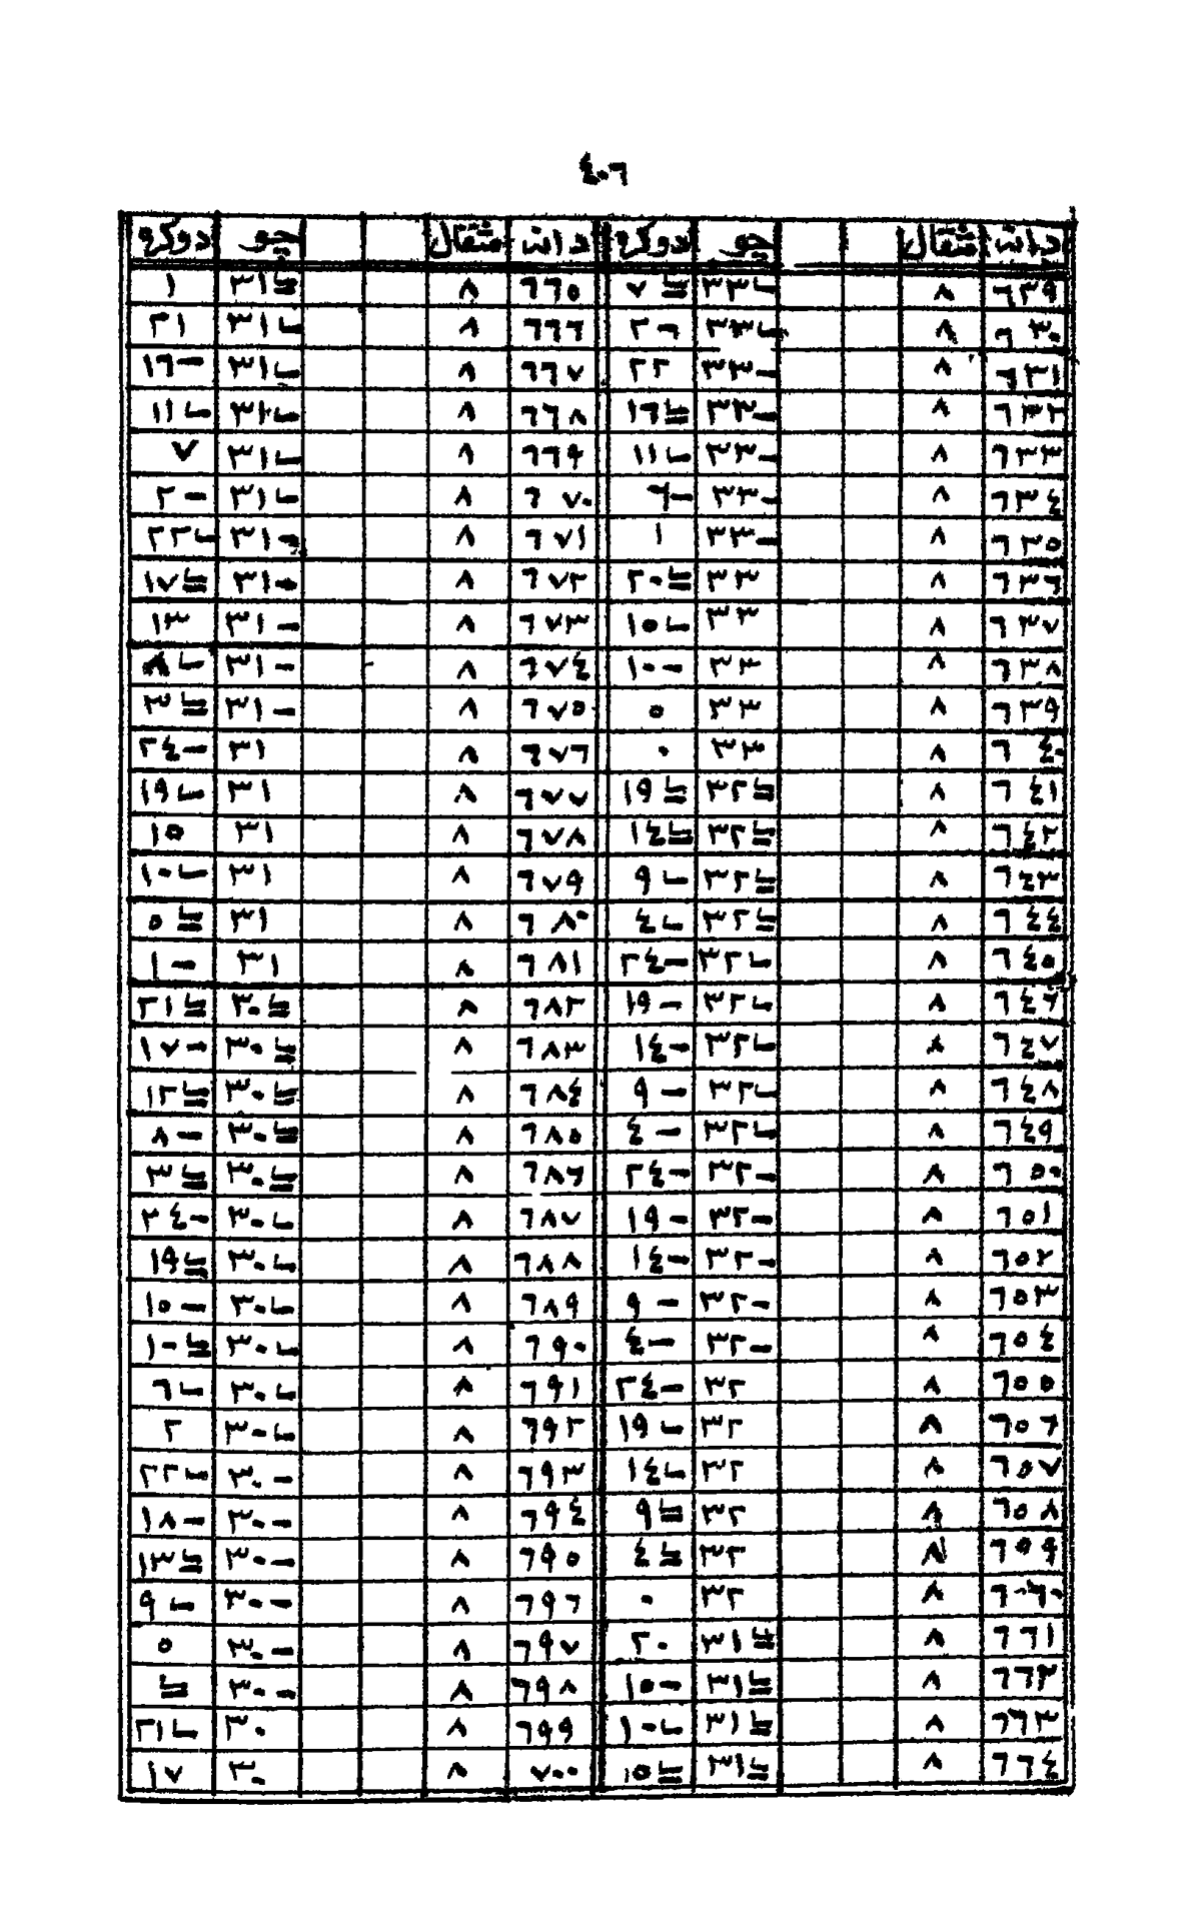 ٤٠٦
دانه مثقال چو دوكره دانه مثقال چو دوكره
٦٢٩ ٨ ٣٣ ٧ ٦٦٥ ٨ ٣١ ١
٦٣٠ ٨ ٣٣ ٢٦ ٦٦٦ ٨ ٣١ ٢١
٦٣١ ٨ ٣٣- ٢٢ ٦٦٧ ٨ ٣١ ١٦-
٦٣٢ ٨ ٣٣- ١٦ ٦٦٨ ٨ ٣١ ١١
٦٣٣ ٨ ٣٣- ١١ ٦٦٩ ٨ ٣١ ٧
٦٣٤ ٨ ٣٣- ٦- ٦٧٠ ٨ ٣١ ٢-
٦٣٥ ٨ ٣٣- ١ ٦٧١ ٨ ٣١- ٢٢
٦٣٦ ٨ ٣٣ ٢٠ ٦٧٢ ٨ ٣١- ١٧
٦٣٧ ٨ ٣٣ ١٥ ٦٧٣ ٨ ٣١- ١٣
٦٣٨ ٨ ٣٣ ١٠- ٦٧٤ ٨ ٣١- ٨
٦٣٩ ٨ ٣٣ ٥ ٦٧٥ ٨ ٣١- ٣
٦٤٠ ٨ ٣٣ ٠ ٦٧٦ ٨ ٣١ ٢٤-
٦٤١ ٨ ٣٢ ١٩ ٦٧٧ ٨ ٣١ ١٩
٦٤٢ ٨ ٣٢ ١٤ ٦٧٨ ٨ ٣١ ١٥
٦٤٣ ٨ ٣٢ ٩ ٦٧٩ ٨ ٣١ ١٠
٦٤٤ ٨ ٣٢ ٤ ٦٨٠ ٨ ٣١ ٥
٦٤٥ ٨ ٣٢ ٢٤- ٦٨١ ٨ ٣١ ١-
٦٤٦ ٨ ٣٢ ١٩- ٦٨٢ ٨ ٣٠ ٢١
٦٤٧ ٨ ٣٢ ١٤- ٦٨٣ ٨ ٣٠ ١٧-
٦٤٨ ٨ ٣٢ ٩- ٦٨٤ ٨ ٣٠ ١٢
٦٤٩ ٨ ٣٢ ٤- ٦٨٥ ٨ ٣٠ ٨-
٦٥٠ ٨ ٣٢- ٢٤- ٦٨٦ ٨ ٣٠ ٣
٦٥١ ٨ ٣٢- ١٩- ٦٨٧ ٨ ٣٠ ٢٤-
٦٥٢ ٨ ٣٢- ١٤- ٦٨٨ ٨ ٣٠ ١٩
٦٥٣ ٨ ٣٢- ٩- ٦٨٩ ٨ ٣٠ ١٥-
٦٥٤ ٨ ٣٢- ٤- ٦٩٠ ٨ ٣٠ ١٠
٦٥٥ ٨ ٣٢ ٢٤- ٦٩١ ٨ ٣٠ ٦
٦٥٦ ٨ ٣٢ ١٩ ٦٩٢ ٨ ٣٠ ٢
٦٥٧ ٨ ٣٢ ١٤ ٦٩٣ ٨ ٣٠- ٢٢
٦٥٨ ٨ ٣٢ ٩ ٦٩٤ ٨ ٣٠- ١٨-
٦٥٩ ٨ ٣٢ ٤ ٦٩٥ ٨ ٣٠- ١٣
٦٦٠ ٨ ٣٢ ٠ ٦٩٦ ٨ ٣٠- ٩
٦٦١ ٨ ٣١ ٢٠ ٦٩٧ ٨ ٣٠- ٥
٦٦٢ ٨ ٣١ ١٥- ٦٩٨ ٨ ٣٠-
٦٦٣ ٨ ٣١ ١٠ ٦٩٩ ٨ ٣٠ ٢١
٦٦٤ ٨ ٣١ ١٥ ٧٠٠ ٨ ٣٠ ١٧